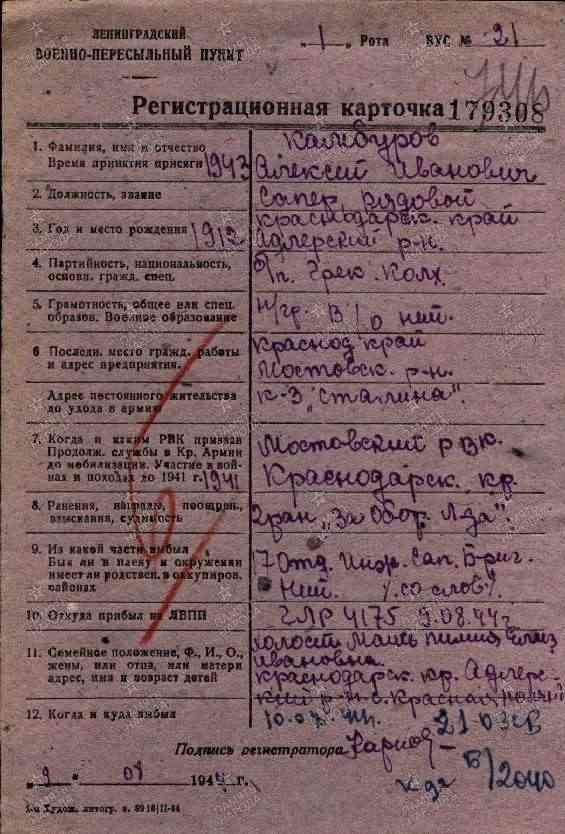 ЛЕНИНГРАДСКИЙ
ВОЕННО-ПЕРЕСЫЛЬНЫЙ ПУНКТ
„1„ Рота ВУС № 21
Регистрационная карточка 179308
1. Фамилия, имя и отчество Камбуров
Время принятия присяги 1943 Алексей Иванович
2. Должность, звание Сапер, рядовой
3. Год и место рождения 1912 Краснодарск. край
Адлерский р-н.
4. Партийность, национальность, основн. гражд. спец. б/п. Грек. Колх.
5. Грамотность, общее или спец. образов. Военное образование н/гр. В/о ней.
6 Последн. место гражд. работы и адрес предприятия. Краснод. край
Мостовск. р-н.
Адрес постоянного жительства до ухода в армию к-з „Сталина".
7. Когда и каким РВК призван Мостовский РВК.
Продолж. службы в Кр. Армии до мобилизации. Участие в войнах и походах до 1941 г. 1941 Краснодарск. кр.
8. Ранения, награды, поощрен., взыскания, судимость 2 ран „За Обор. Л-да".
9. Из какой части выбыл 17 Отд. Инж. Сап. Бриг.
Был ли в плену и окружении имеет ли родствен. в оккупиров. районах Ней. со слов
10. Откуда прибыл на ЛВПП ГЛР 4175 9.08.44г
11. Семейное положение, Ф., И., О., жены, или отца, или матери адрес, имя и возраст детей холост Мать
Ивановна
Краснодарск. кр. Адлерский р-н с. Красная
12. Когда и куда выбыл 21 ОЗСБ
Подпись регистратора
„9„ 08 1944 г.
2-я Худож. литогр. з.